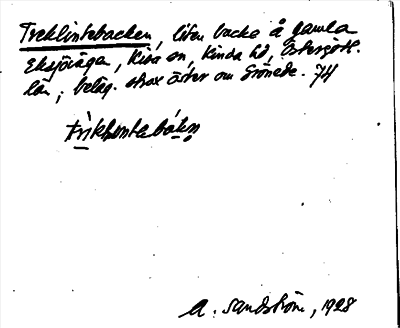 Treklintebacken, liten backe å gamla
Eksjövägen, Kisa sn, Kinda hd, Östergötl.
län; beläg. strax öster om Grönede. 74
trìkḷintabákən
A. Sandström, 1928